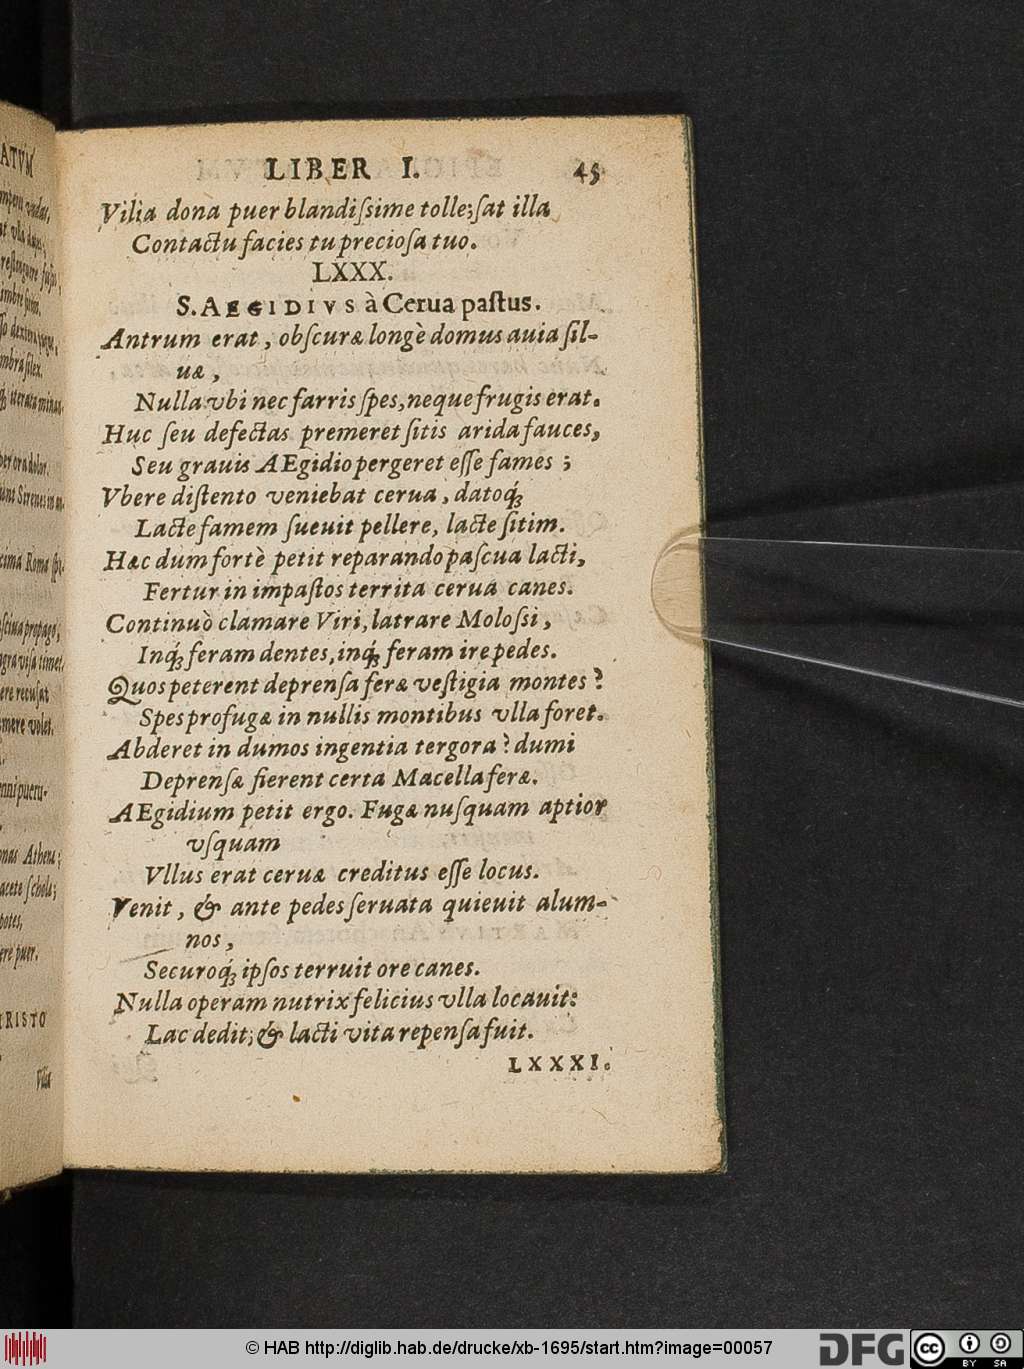 LIBER I. 45
Vilia dona puer blandiſsime tolle; ſat illa
Contactu facies tu precioſa tuo.
LXXX.
S. AEGIDIVS à Cerua paſtus.
Antrum erat, obſcuræ longè domus auia ſil-
uæ,
Nulla vbi nec farris ſpes, neque frugis erat.
Huc ſeu defectas premeret ſitis arida fauces,
Seu grauis AEgidio pergeret eſſe fames;
Vbere diſtento veniebat cerua, datoq́;
Lacte famem ſueuit pellere, lacte ſitim.
Hæc dum fortè petit reparando paſcua lacti,
Fertur in impaſtos territa cerua canes.
Continuò clamare Viri, latrare Moloſsi,
Inq́; feram dentes, inq́; feram ire pedes.
Quos peterent deprenſa feræ veſtigia montes?
Spes profugæ in nullis montibus vlla foret.
Abderet in dumos ingentia tergora? dumi
Deprenſæ fierent certa Macella feræ.
AEgidium petit ergo. Fugæ nuſquam aptior
vſquam
Vllus erat ceruæ creditus eſſe locus.
Venit, & ante pedes ſeruata quieuit alum-
nos,
Securoq́; ipſos terruit ore canes.
Nulla operam nutrix felicius vlla locauit:
Lac dedit; & lacti vita repenſa fuit.
LXXXI.
ATVM
ſciua propago;
ere recuſat
mere volet.
onas Athenæ;
acete ſchola;
ere puer.
RISTO
Vilia
© HAB http://diglib.hab.de/drucke/xb-1695/start.htm?image=00057
DFG
cc
BY SA